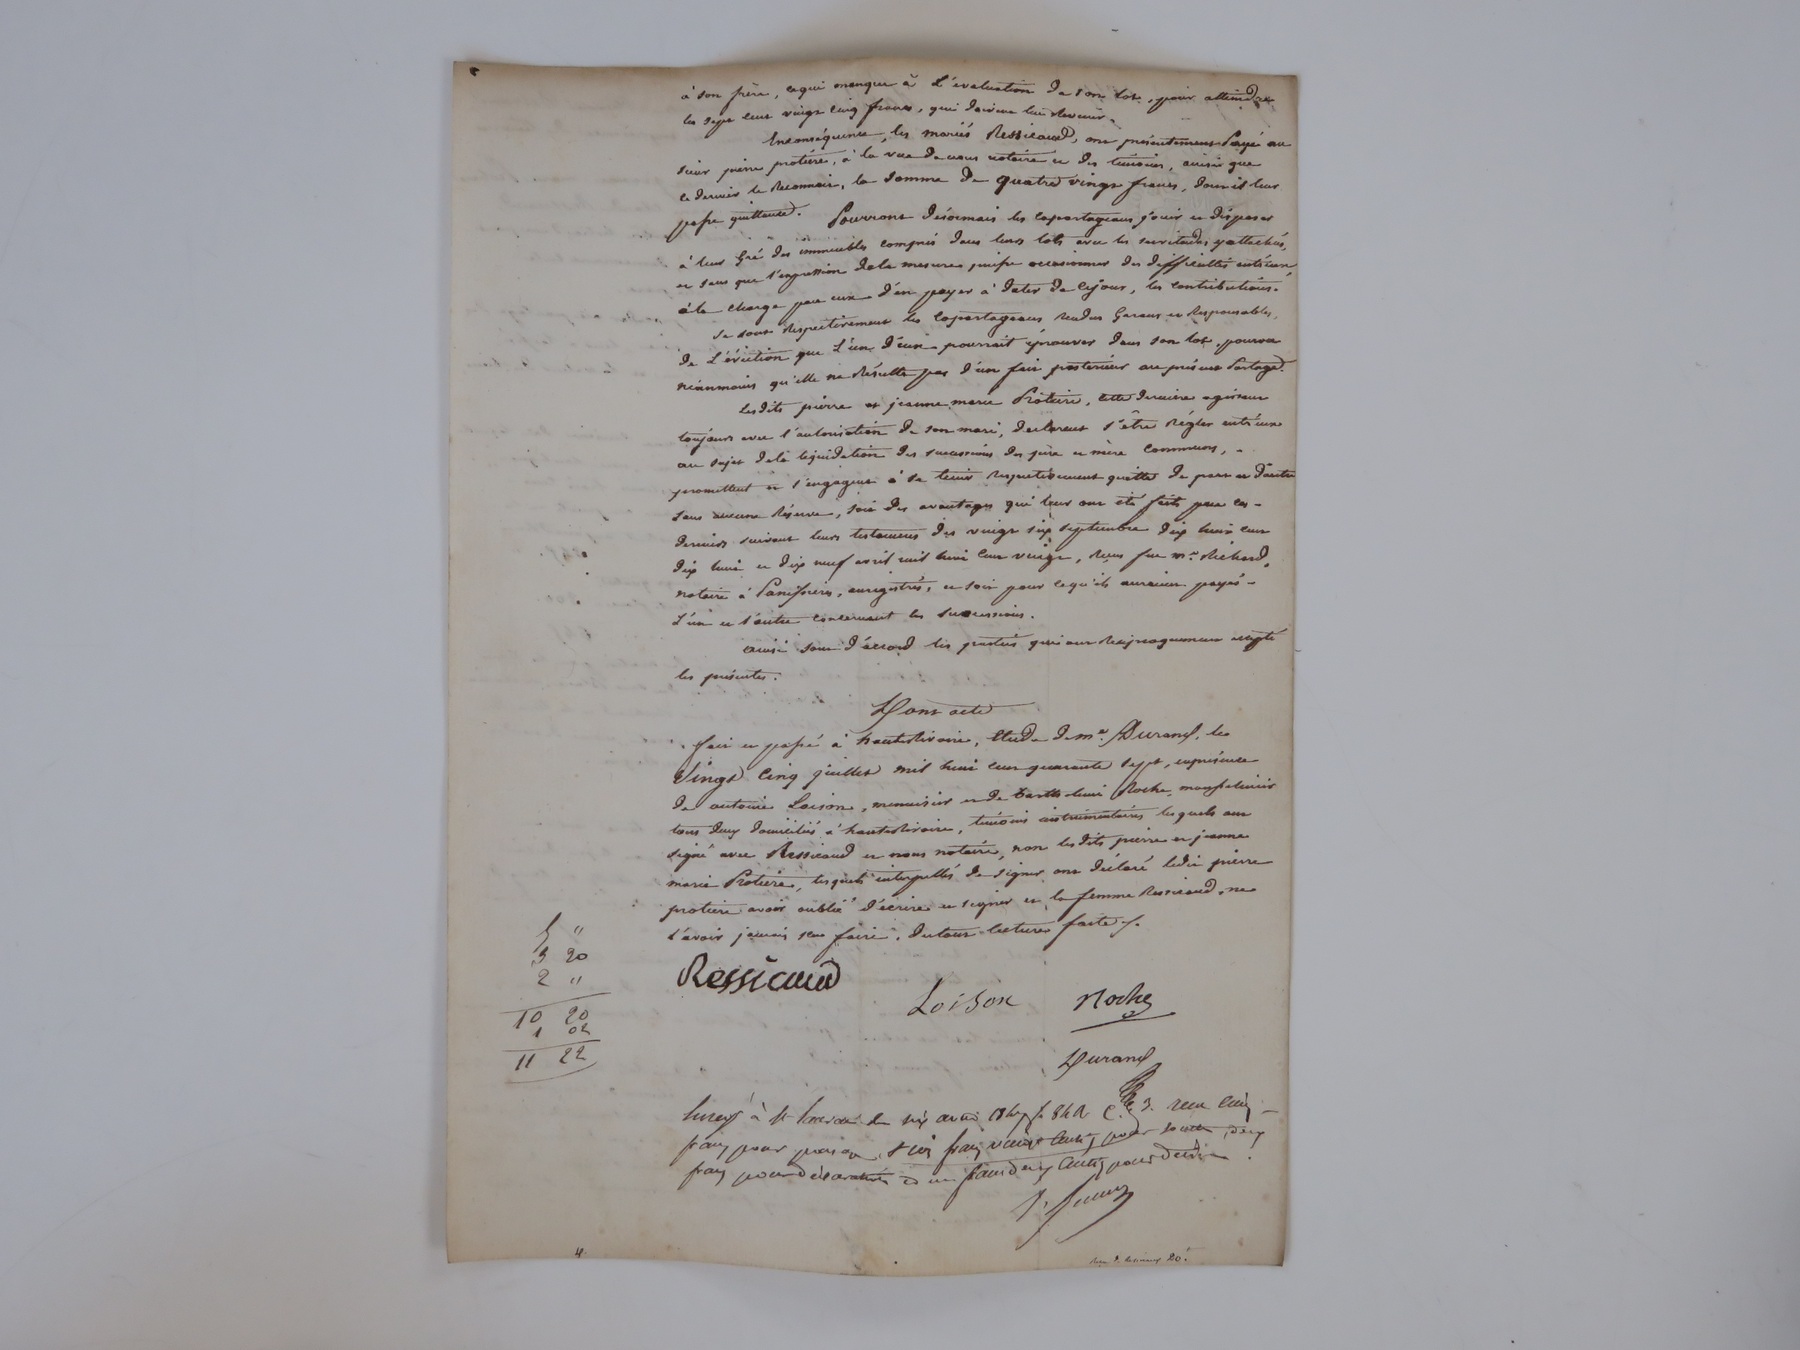 à son frère, cequi manque à L'évaluation de son lot, pour atteindre
les sept cent vingt cinq francs, qui doivent lui Revenir.
Enconséquence, les mariés Ressicaud, ont présentement Payé au
sieur pierre protière, à la vue de nous notaire et des témoins, ainsi que
ce dernier le Reconnait, la somme de quatre vingt francs, dont il leur
passe quittance. Pourront désormais les copartageans jouir et disposer
à leur Gré des immeubles compris dans leurs lots avec les servitudes yattachés,
et sans que l'expression dela mesure puisse occasionner des difficultés entr'eux,
àla charge par eux d'en payer à dater de cejour, les contributions.
Se sont Respectivement les Copartageans rendus Garans et Responsables,
de L'éviction que L'un d'eux pourrait éprouver dans son lot, pourvu
néanmoins qu'elle ne Résulte pas d'un fait postérieur au présent Partage.
Lesdits pierre et jeanne marie Protière, cette dernière agissant
toujours avec l'autorisation de son mari, declarent s'être Régler entr'eux
au sujet dela liquidation des successions des père et mère communs,
promettent et s'engagent à se tenir respectivement quitte de part et d'autre
sans aucune Réserve, soit des avantages qui leur ont été faits par ces
derniers suivant leurs testamens des vingt six septembre dix huit cent
dix huit et dix neuf avril mil huit cent vingt, Reçus par me. Richard,
notaire à Panissières, enregistrés, et soit pour cequ'ils auraient payés
L'un et l'autre concernant les successions.
Ainsi sont d'accord les parties qui ont Reciproquement accepté
les présentes.
Dont acte
fait et passé à hauterivoire, Etude de me. Durand, le
Vingt Cinq juillet mil huit cent quarante sept, enprésence
de antoine Loison, menuisier et de barthelemi Roche,
tous deux domiciliés à hauterivoire, témoins instrumentaires lesquels ont
signé avec Ressicaud et nous notaire, non lesdits pierre et jeanne
marie Protière, lesquels interpellés de signer ont déclaré ledit pierre
protière avoir oublié d'écrire et signer et la femme Ressicaud, ne
l'avoir jamais seu faire. Dutout lecture faite.
5 "
3 20
2 "
10 20
1 02
11 22
Ressicaud
Loison Roche
Durand
à St le six août 1847 fo 84 Rc 3. reçu cinq
francs pour trois francs vingt centimes pour soulte, deux
francs pour et un franc deux centimes pour décime.
4
20